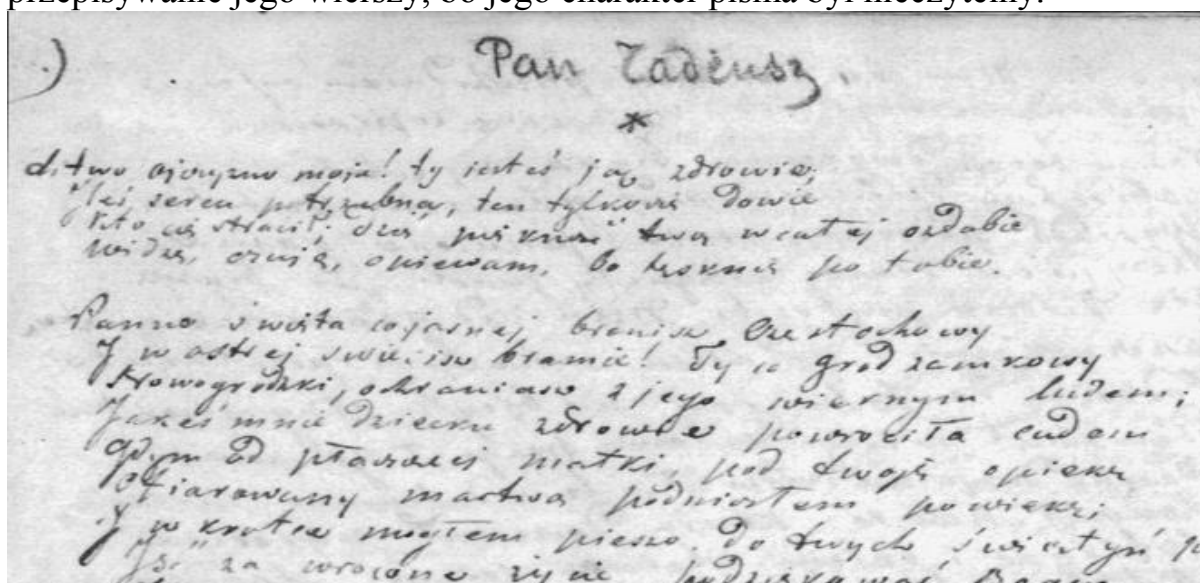 przepisywanie jego wierszy, bo jego charakter pisma był nieczytelny.
.)
Pan Tadeusz.
*
Litwo ojczyzno moja! ty jesteś jak zdrowie;
Ileś
Kto cię stracił; dziś piękność twą w całej ozdobie
widzę, czuję, opiewam, bo tęsknię po tobie.
Panno święta co jasnej bronisz Częstochowy
I w ostrej świecisz bramie! Ty co gród zamkowy
Nowogrodzki, ochraniasz z jego wiernym ludem;
Jakeś mnie dziecko zdrowie powróciła cudem
Gdym od płaczącej matki, pod twoję opiekę
Ofiarowany martwą podniosłem powiekę;
I w krotce mogłem pieszo, do twych świątyń
za wrócone życie podziękować